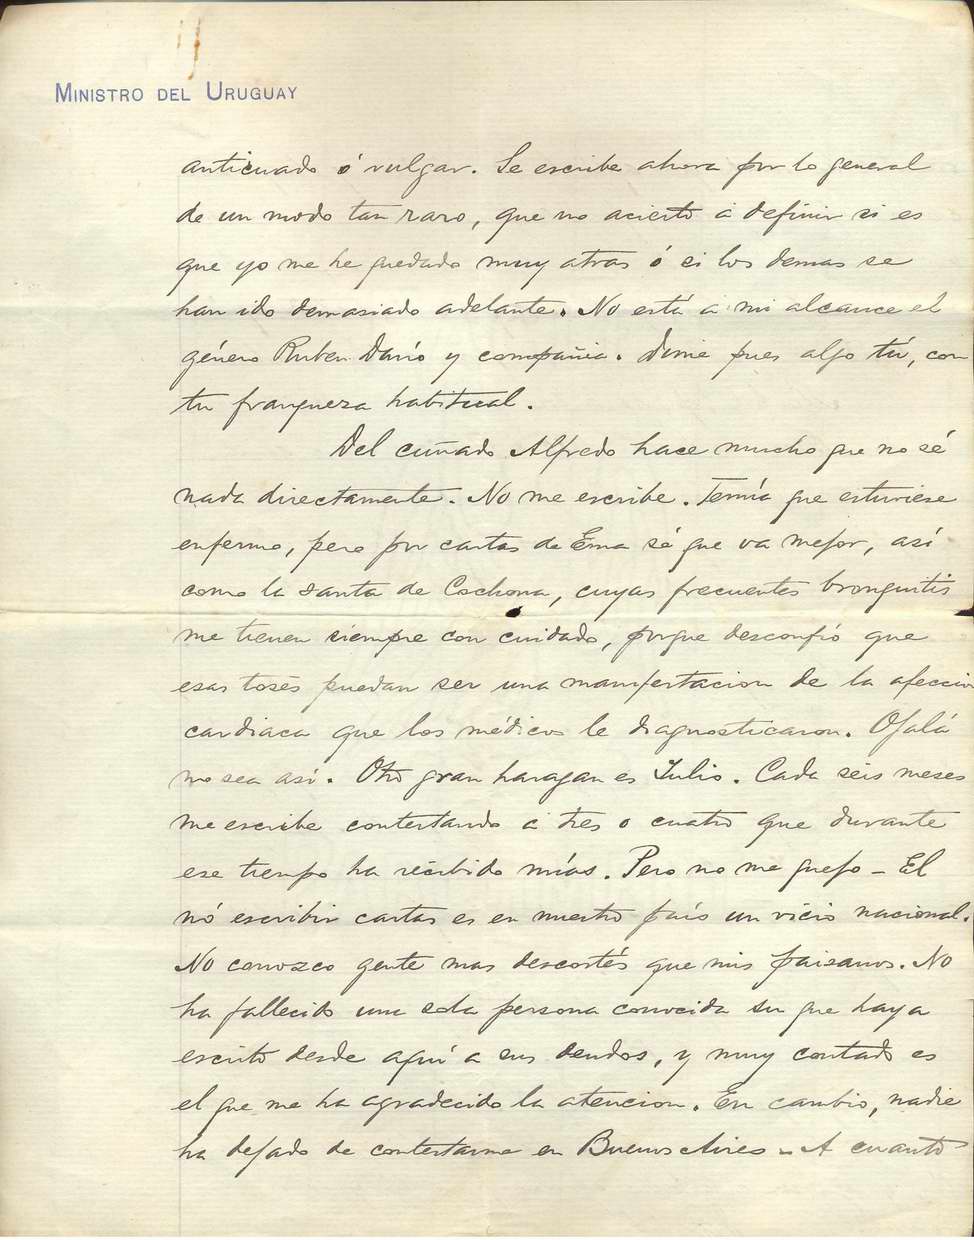 MINISTRO DEL URUGUAY
anticuado ó vulgar. Se escribe ahora por lo general
de un modo tan raro, que no acierto á definir si es
que yo me he quedado muy atras ó si los demas se
han ido demasiado adelante. No está a mi alcance el
género Ruben Darío y compañia. Dime pues algo tú, con
tu franqueza habitual.
Del cuñado Alfredo hace mucho que no sé
nada directamente. No me escribe. Temía que estuviese
enfermo, pero por cartas de Ema sé que va mejor, así
como la santa de Cochona, cuyas frecuentes bronquitis
me tienen siempre con cuidado, porque desconfío que
esas toses puedan ser una manifestacion de la afeccion
cardiaca que los médicos le diagnosticaron. Ojalá
no sea así. Otro gran haragan es Julio. Cada seis meses
me escribe contestando á tres o cuatro que durante
ese tiempo ha recibido mías. Pero no me quejo - El
nó escribir cartas es en nuestro país un vicio nacional.
No conozco gente mas descortés que mis paisanos. No
ha fallecido una sola persona conocida sin que haya
escrito desde aquí a sus deudos, y muy contado es
el que me ha agradecido la atencion. En cambio, nadie
ha dejado de contestarme en Buenos Aires - A cuanto